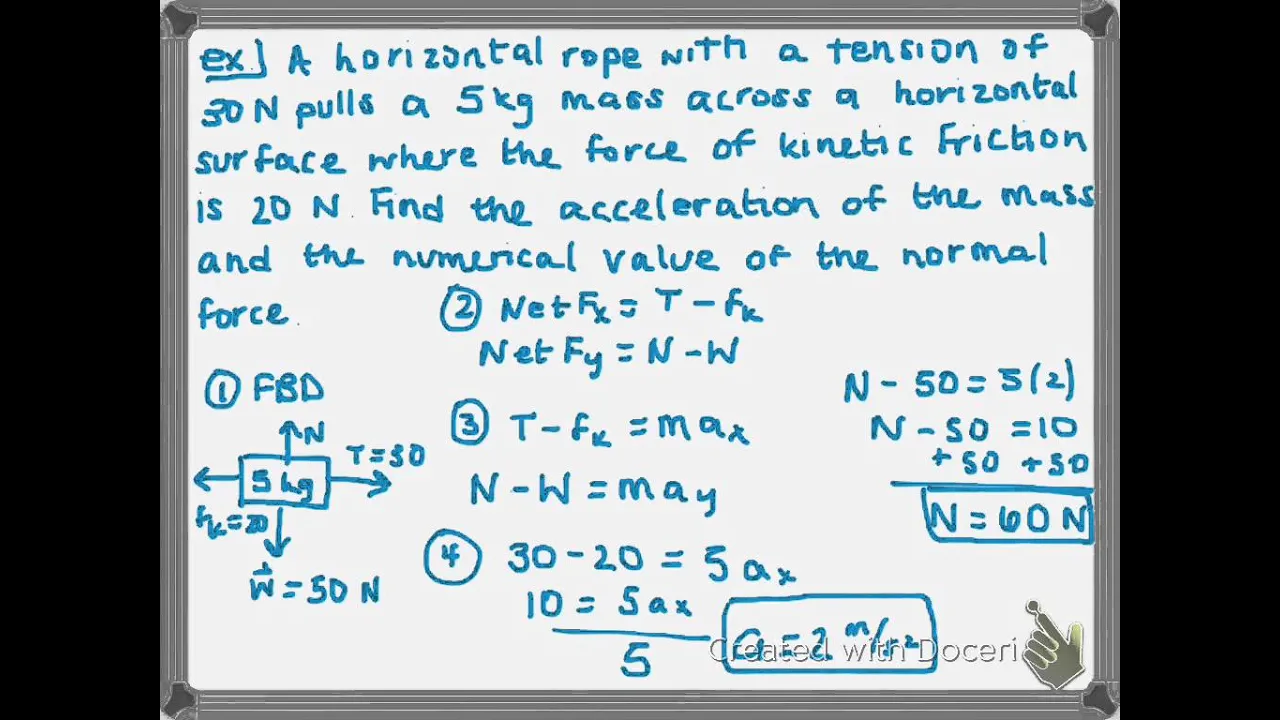 ex.] A horizontal rope with a tension of
30 N pulls a 5kg mass across a horizontal
surface where the force of kinetic friction
is 20 N. Find the acceleration of the mass
and the numerical value of the normal
force.
② Net Fx = T - fk
Net Fy = N - W
① FBD
N
T = 30
5 kg
fk = 20
W = 50 N
③ T - fk = max
N - W = may
④ 30 - 20 = 5ax
10 = 5ax
5
a = 2 m/s2
N - 50 = 5(2)
N - 50 = 10
+ 50 + 50
N = 60 N
Created with Doceri